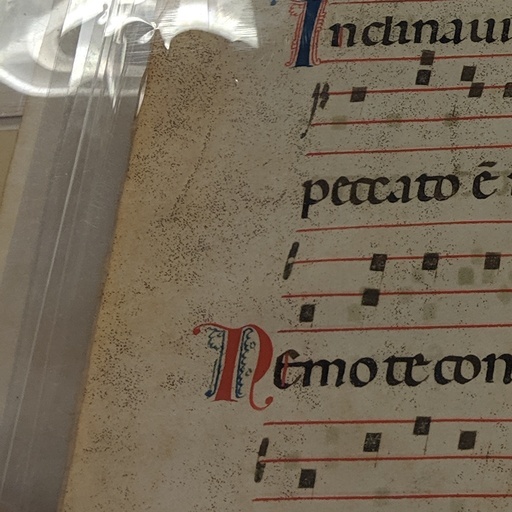 Inclinaui
peccato ē
Nemo te con